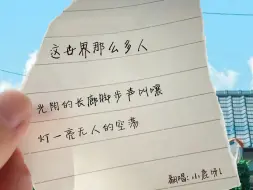 这世界那么多人
光阴的长廊脚步声叫嚷
灯一亮无人的空荡
翻唱:小虎牙